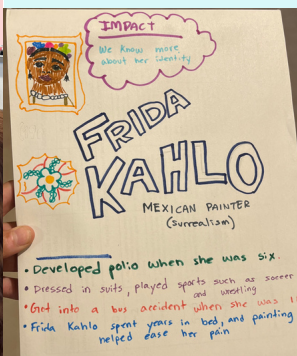 IMPACT
We know more
about her identity
FRIDA
KAHLO
MEXICAN PAINTER
(surrealism)
• Developed polio when she was six.
• Dressed in suits, played sports such as soccer
and wrestling
• Get into a bus accident when she was
• Frida Kahlo spent years in bed, and painting
helped ease her pain